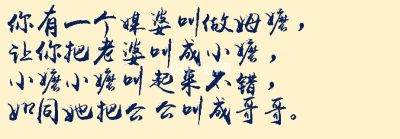 你有一个媒婆叫做姆嬷，
让你把老婆叫成小嬷，
小嬷小嬷叫起来不错，
如同她把公公叫成哥哥。